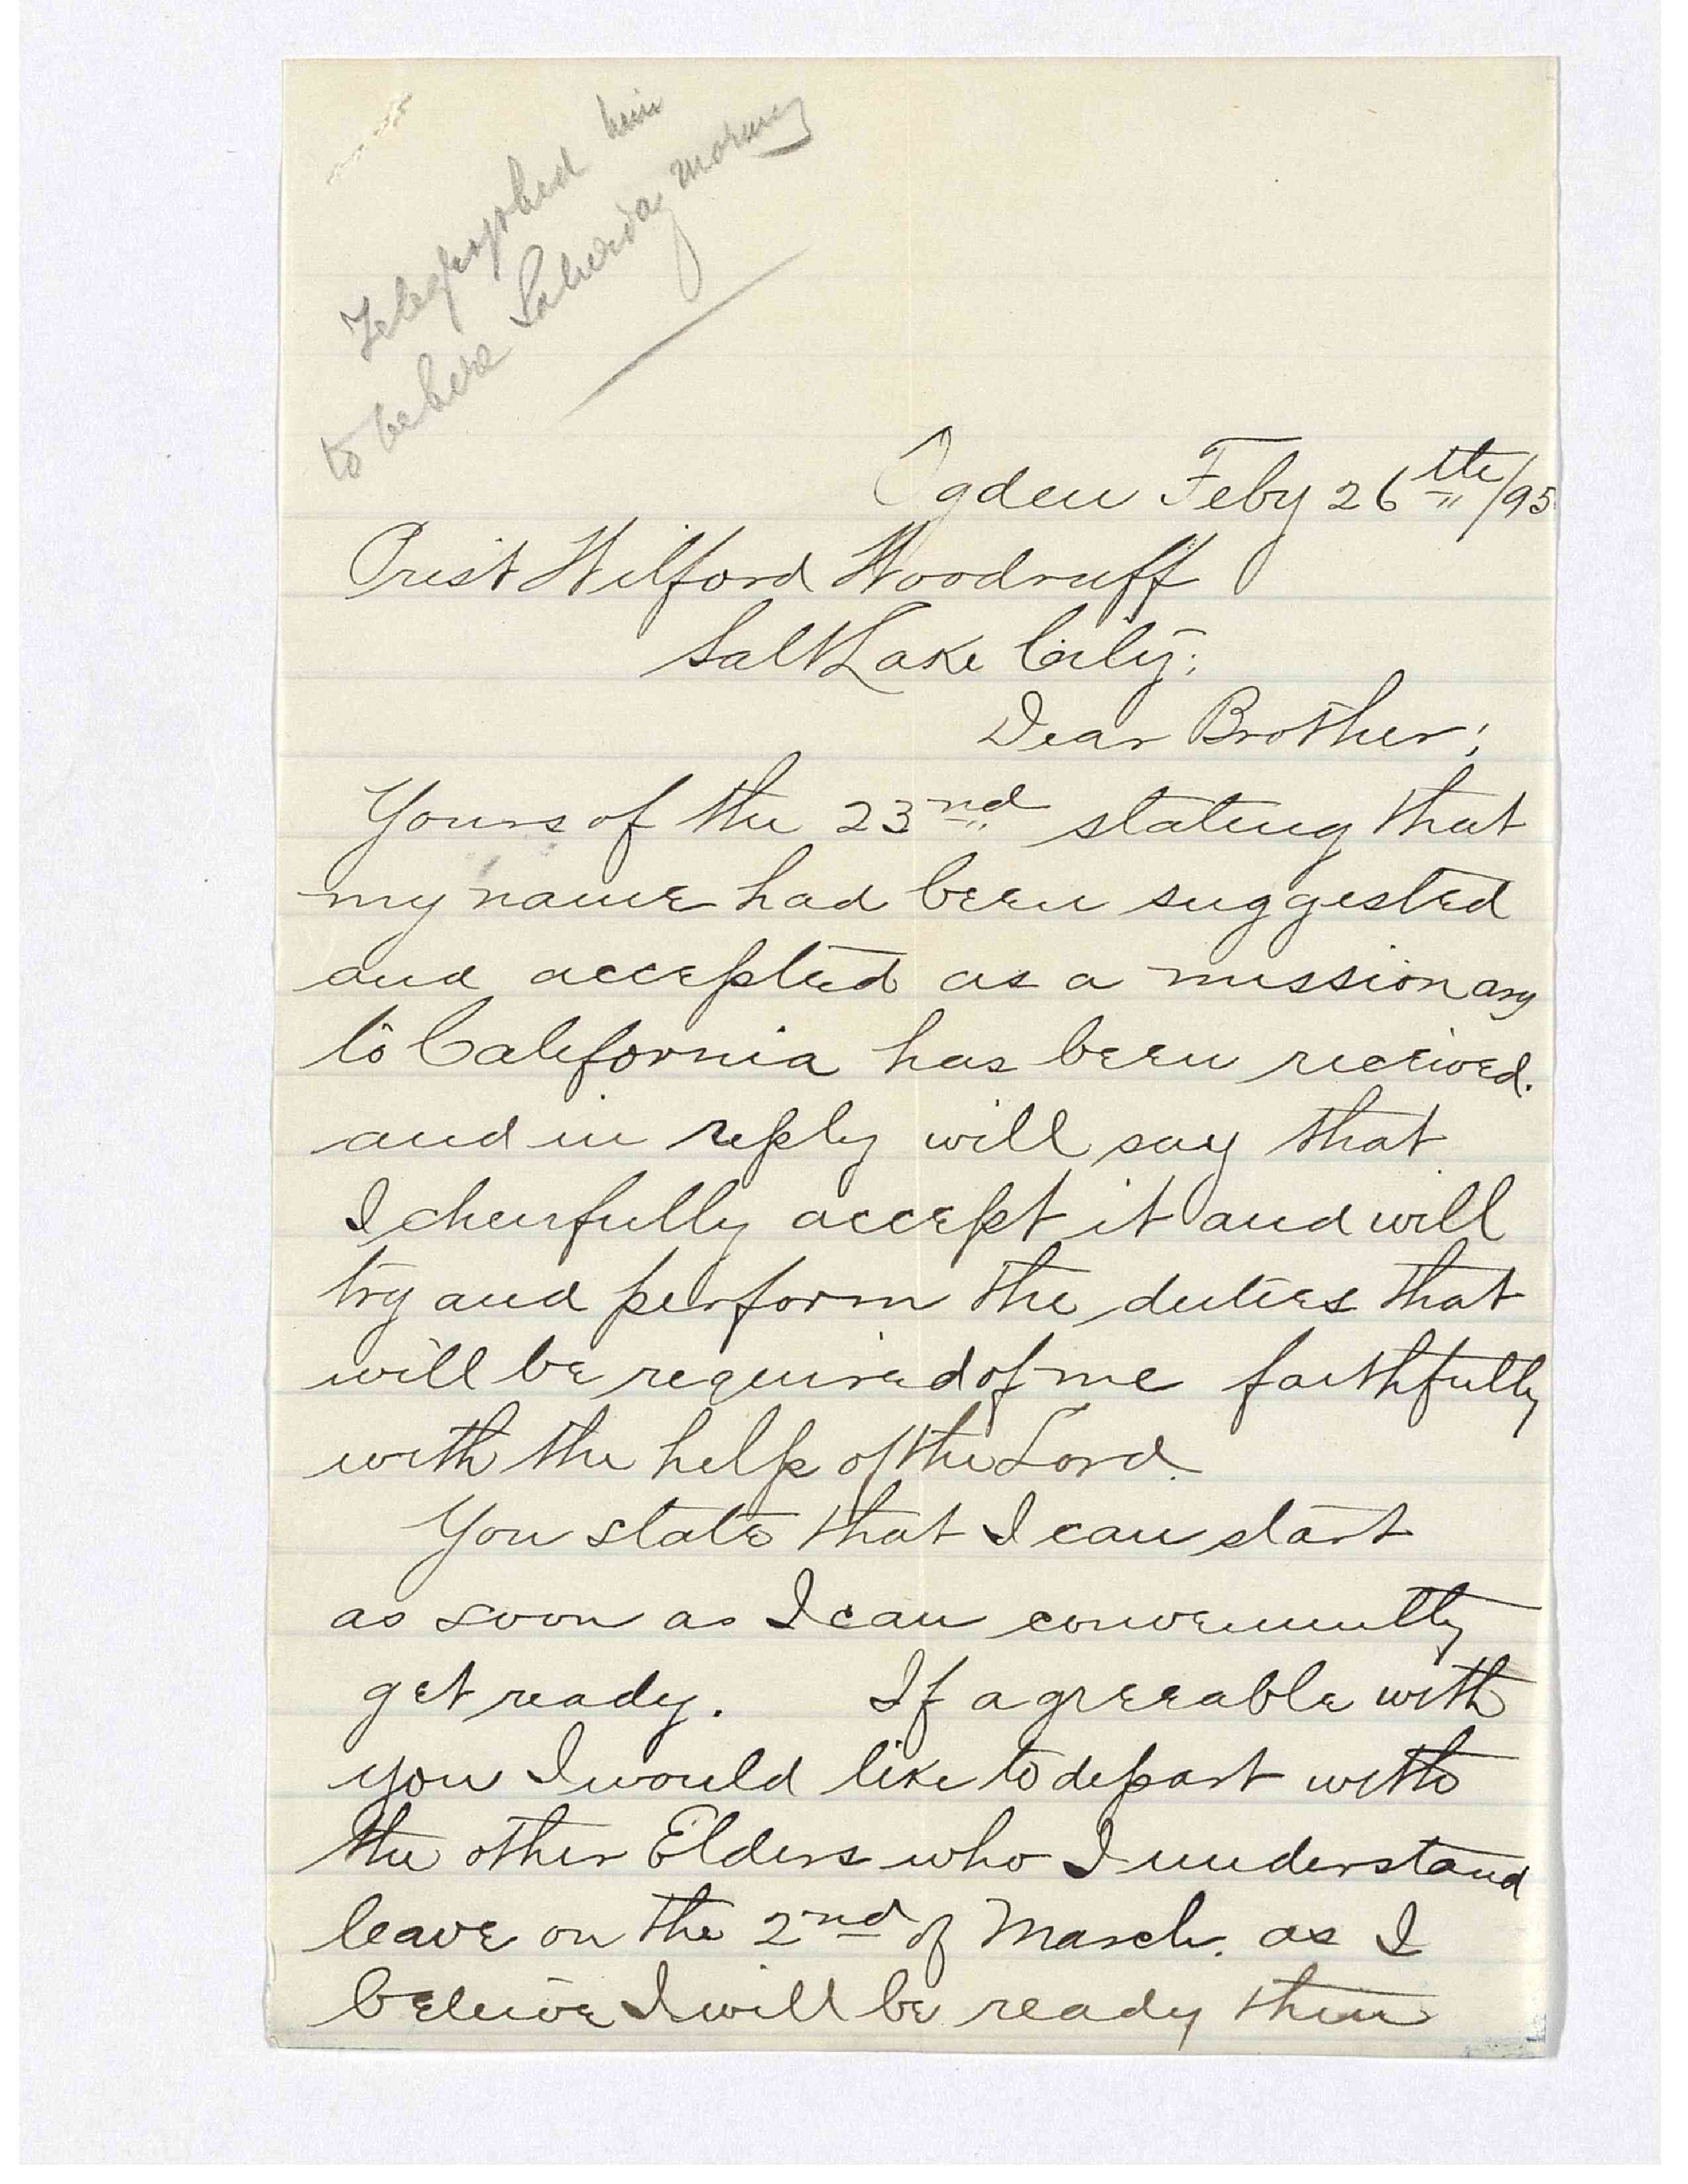 Telegraphed him
to be here Saturday morning
Ogden Feby 26th/95
Prest Wilford Woodruff
Salt Lake City;
Dear Brother;
Yours of the 23nd stating that
my name had been suggested
and accepted as a missionary
to California has been received.
and in reply will say that
I cheerfully accept it and will
try and perform the duties that
will be required of me faithfully
with the help of the Lord.
You state that I can start
as soon as I can conveniently
get ready. If agreeable with
you I would like to depart with
the other Elders who I understand
leave on the 2nd of March. as I
believe I will be ready then